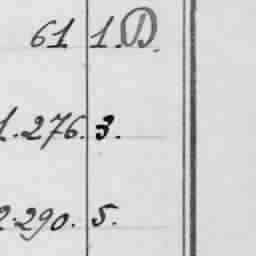 61 1.D.
1.276. 3.
2.290. 5.